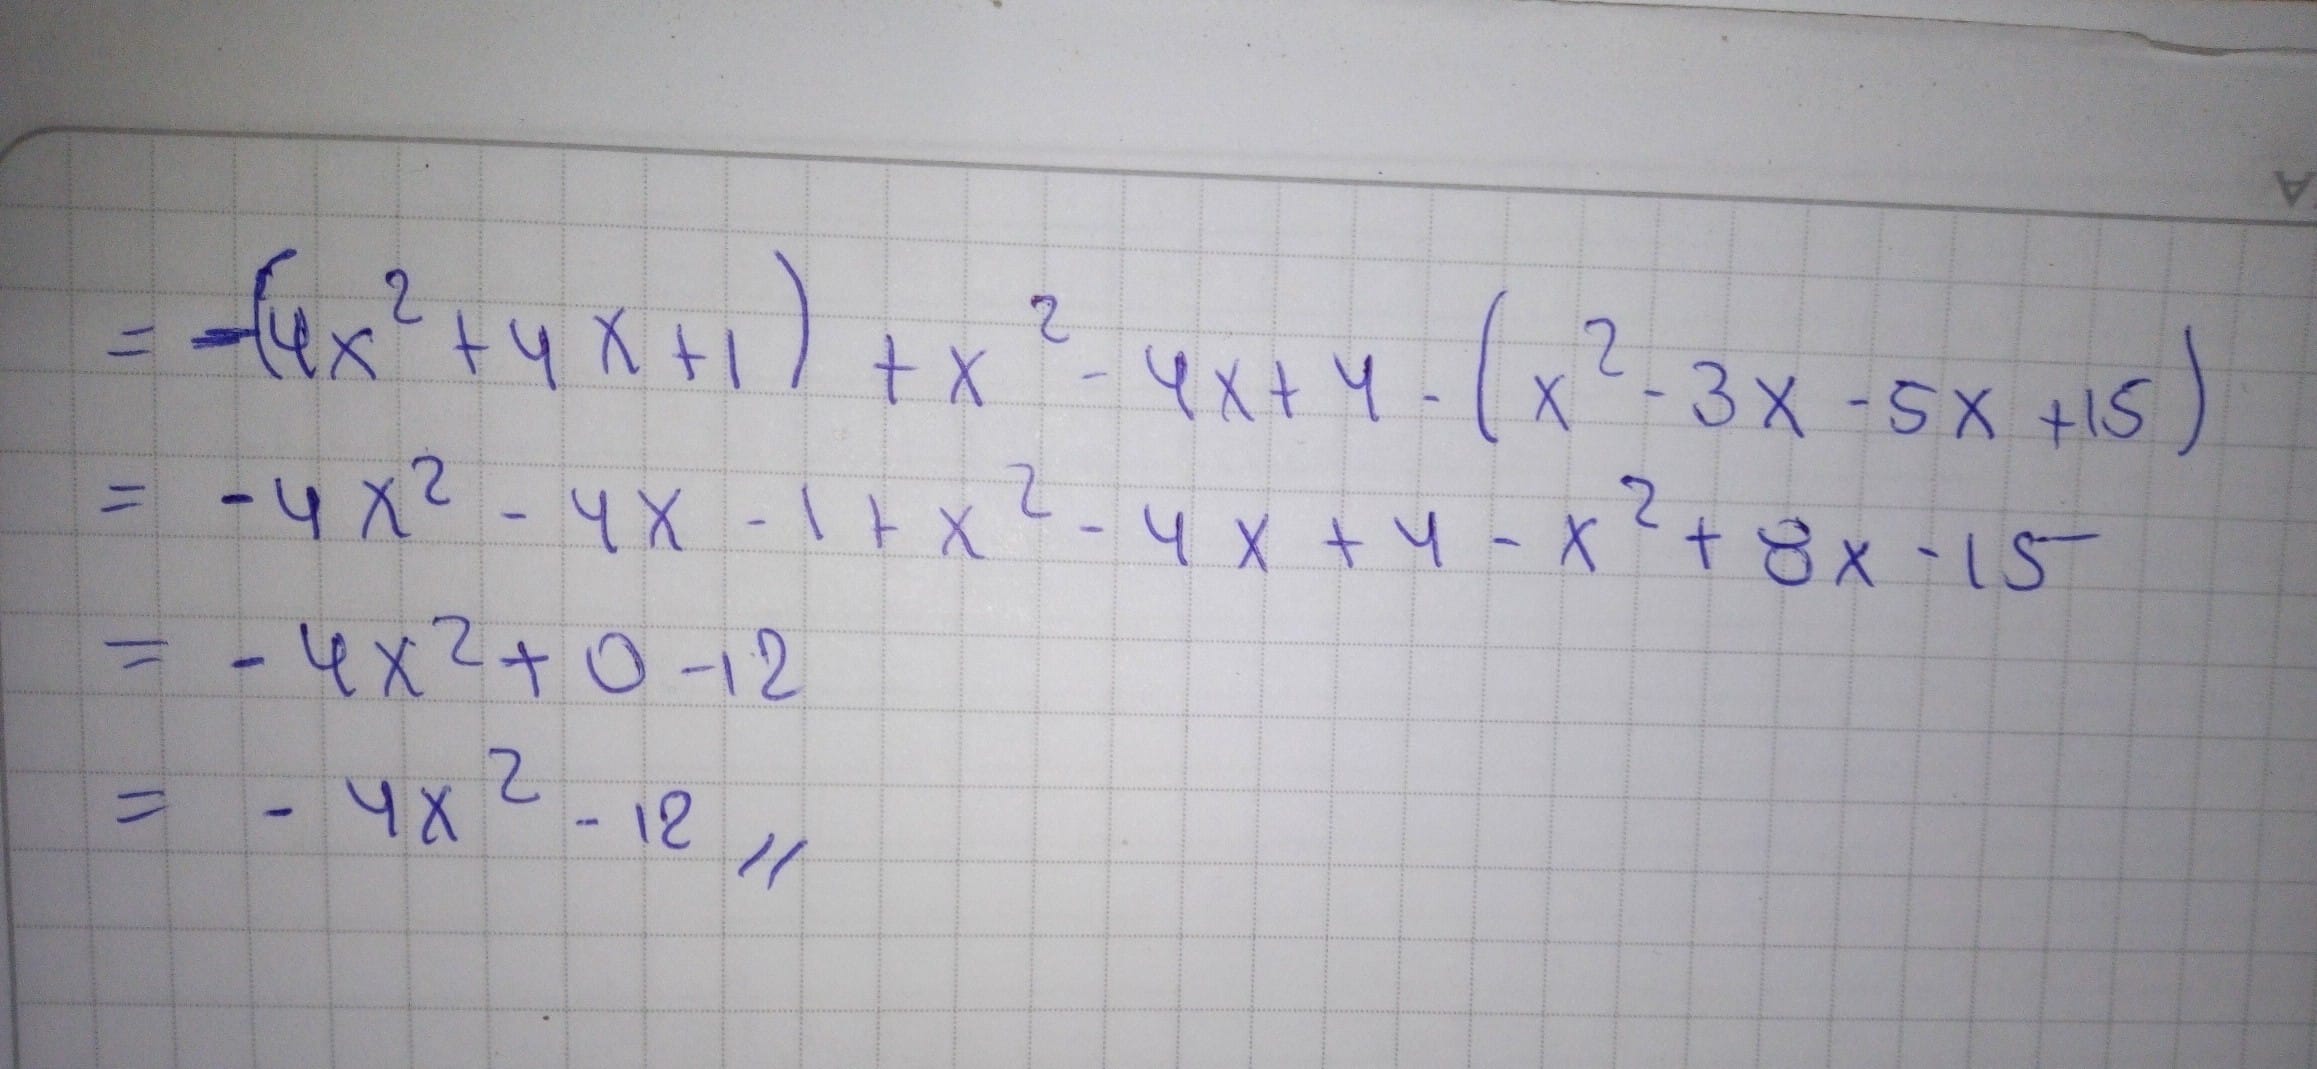 = -(4x² + 4x + 1) + x² - 4x + 4 - (x² - 3x - 5x + 15)
= -4x² - 4x - 1 + x² - 4x + 4 - x² + 8x - 15
= -4x² + 0 - 12
= -4x² - 12 //